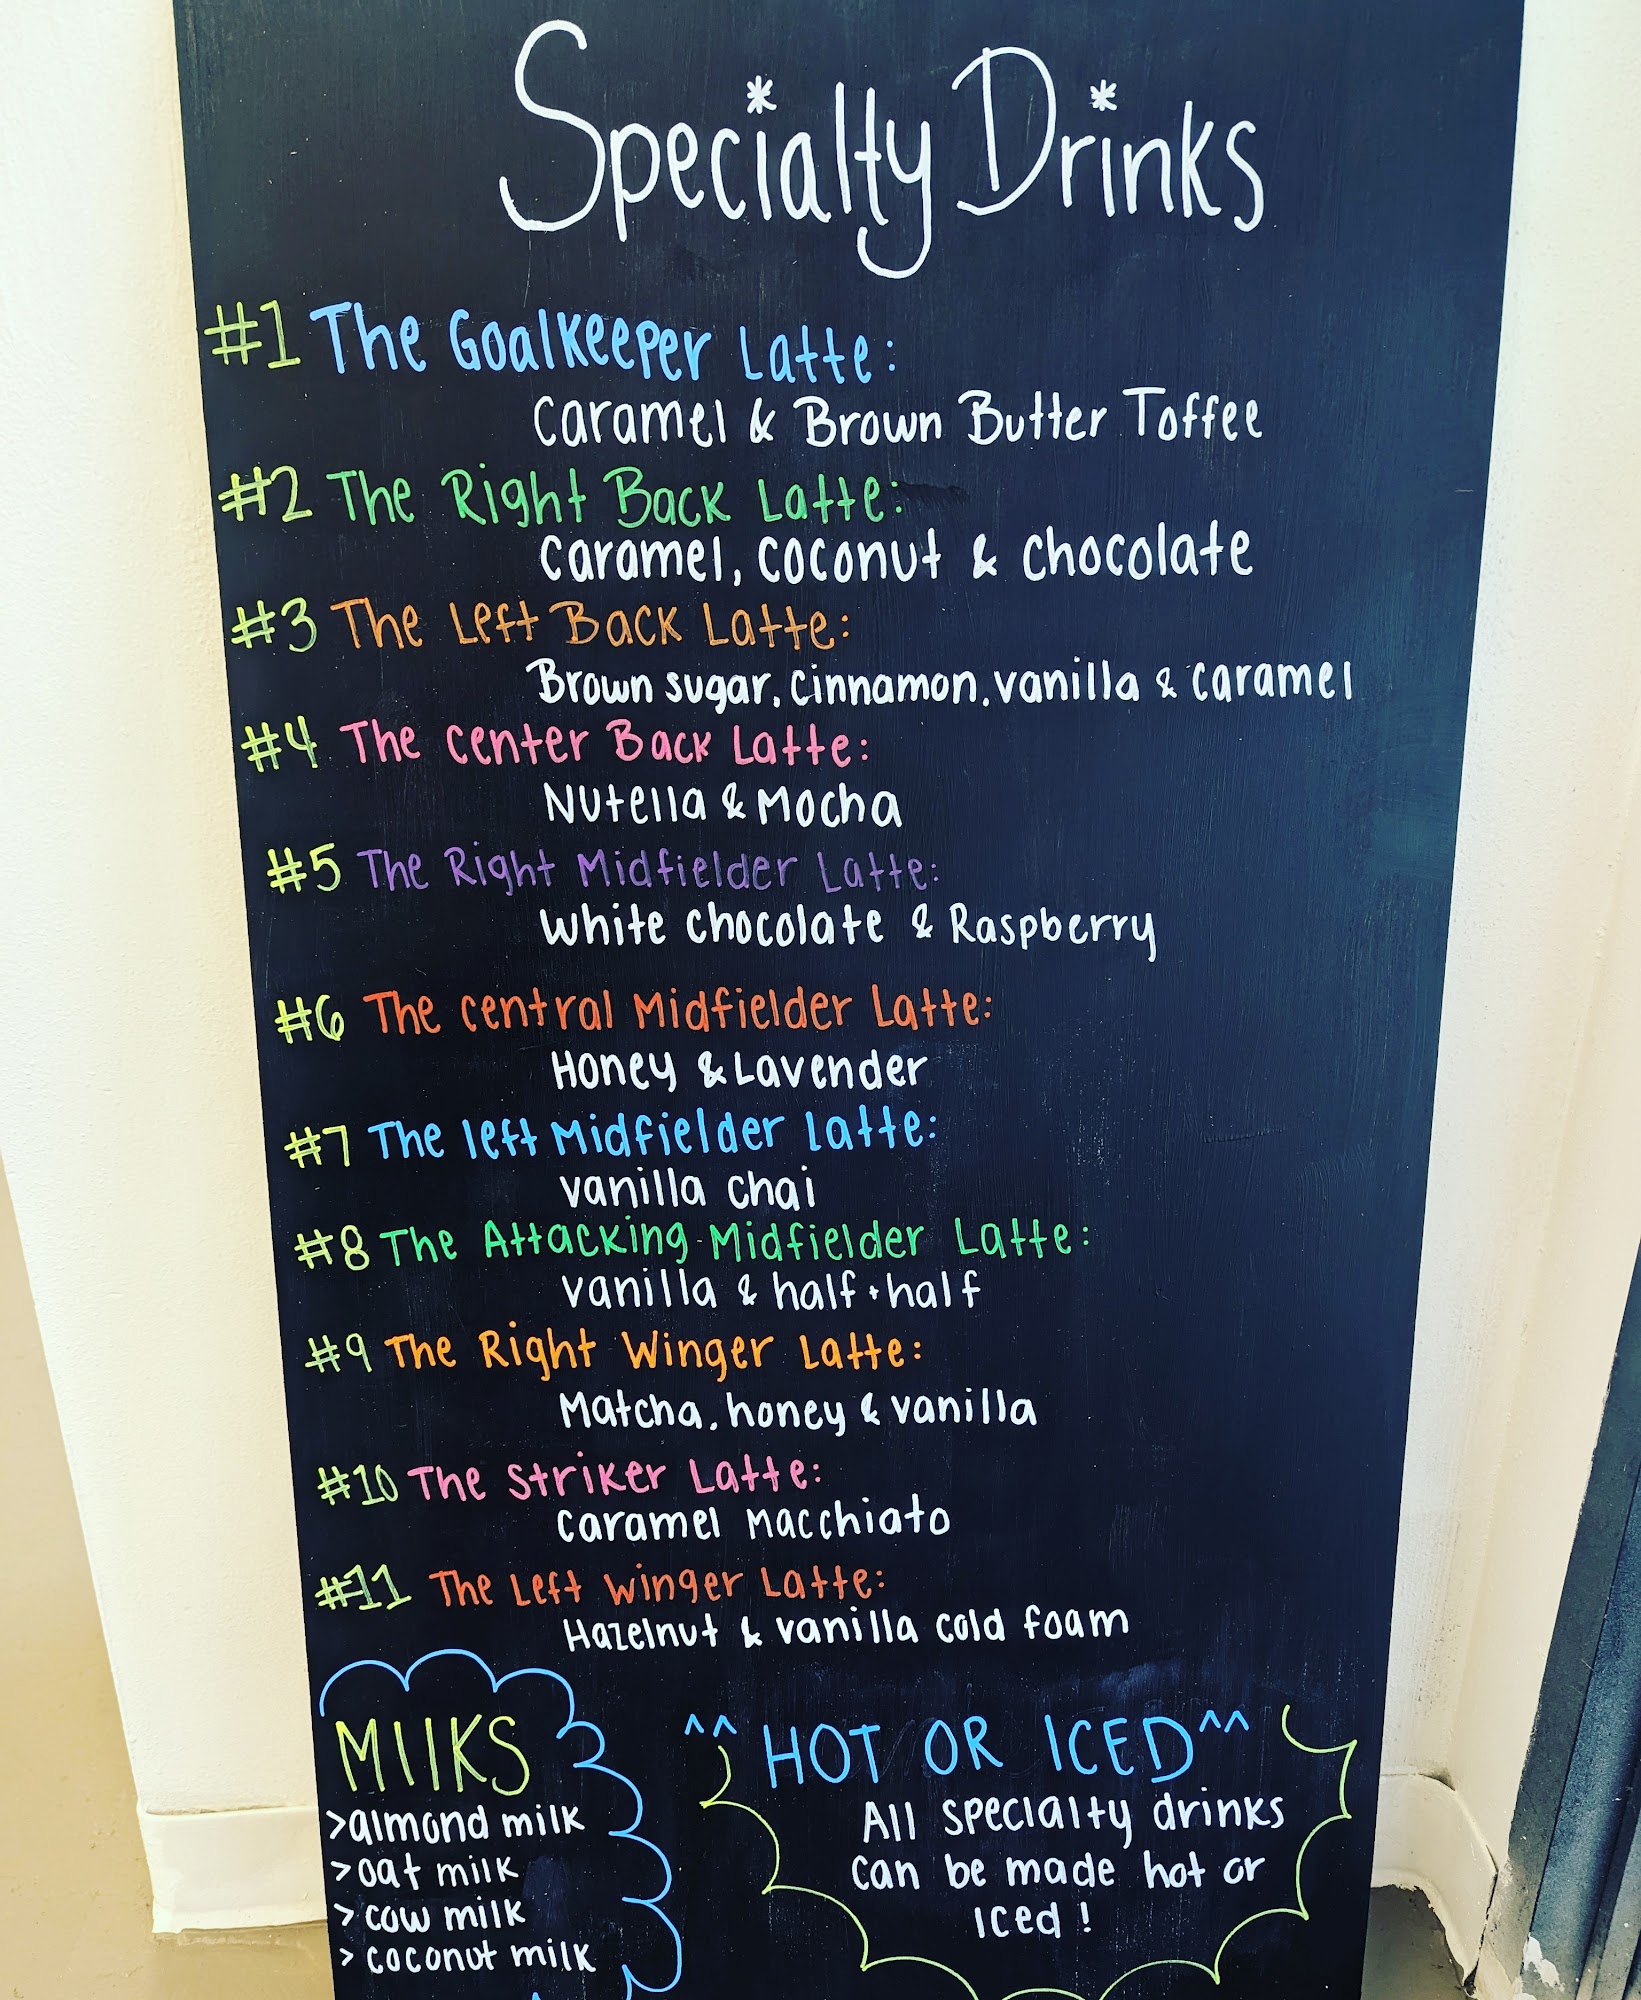 Specialty Drinks
#1 The Goalkeeper Latte:
Caramel & Brown Butter Toffee
#2 The Right Back Latte:
Caramel, coconut & chocolate
#3 The Left Back Latte:
Brown sugar, cinnamon, vanilla & caramel
#4 The Center Back Latte:
Nutella & Mocha
#5 The Right Midfielder Latte:
White chocolate & Raspberry
#6 The Central Midfielder Latte:
Honey & Lavender
#7 The left Midfielder Latte:
vanilla chai
#8 The Attacking Midfielder Latte:
vanilla & half + half
#9 The Right Winger Latte:
Matcha, honey & vanilla
#10 The Striker Latte:
Caramel Macchiato
#11 The Left Winger Latte:
Hazelnut & vanilla cold foam
MIlKS
>almond milk
>oat milk
> cow milk
> coconut milk
^^ HOT OR ICED ^^
All specialty drinks
can be made hot or
Iced!